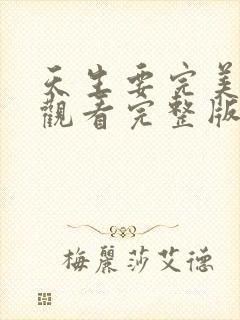 天生要完美
觀看完整版
梅麗莎艾德